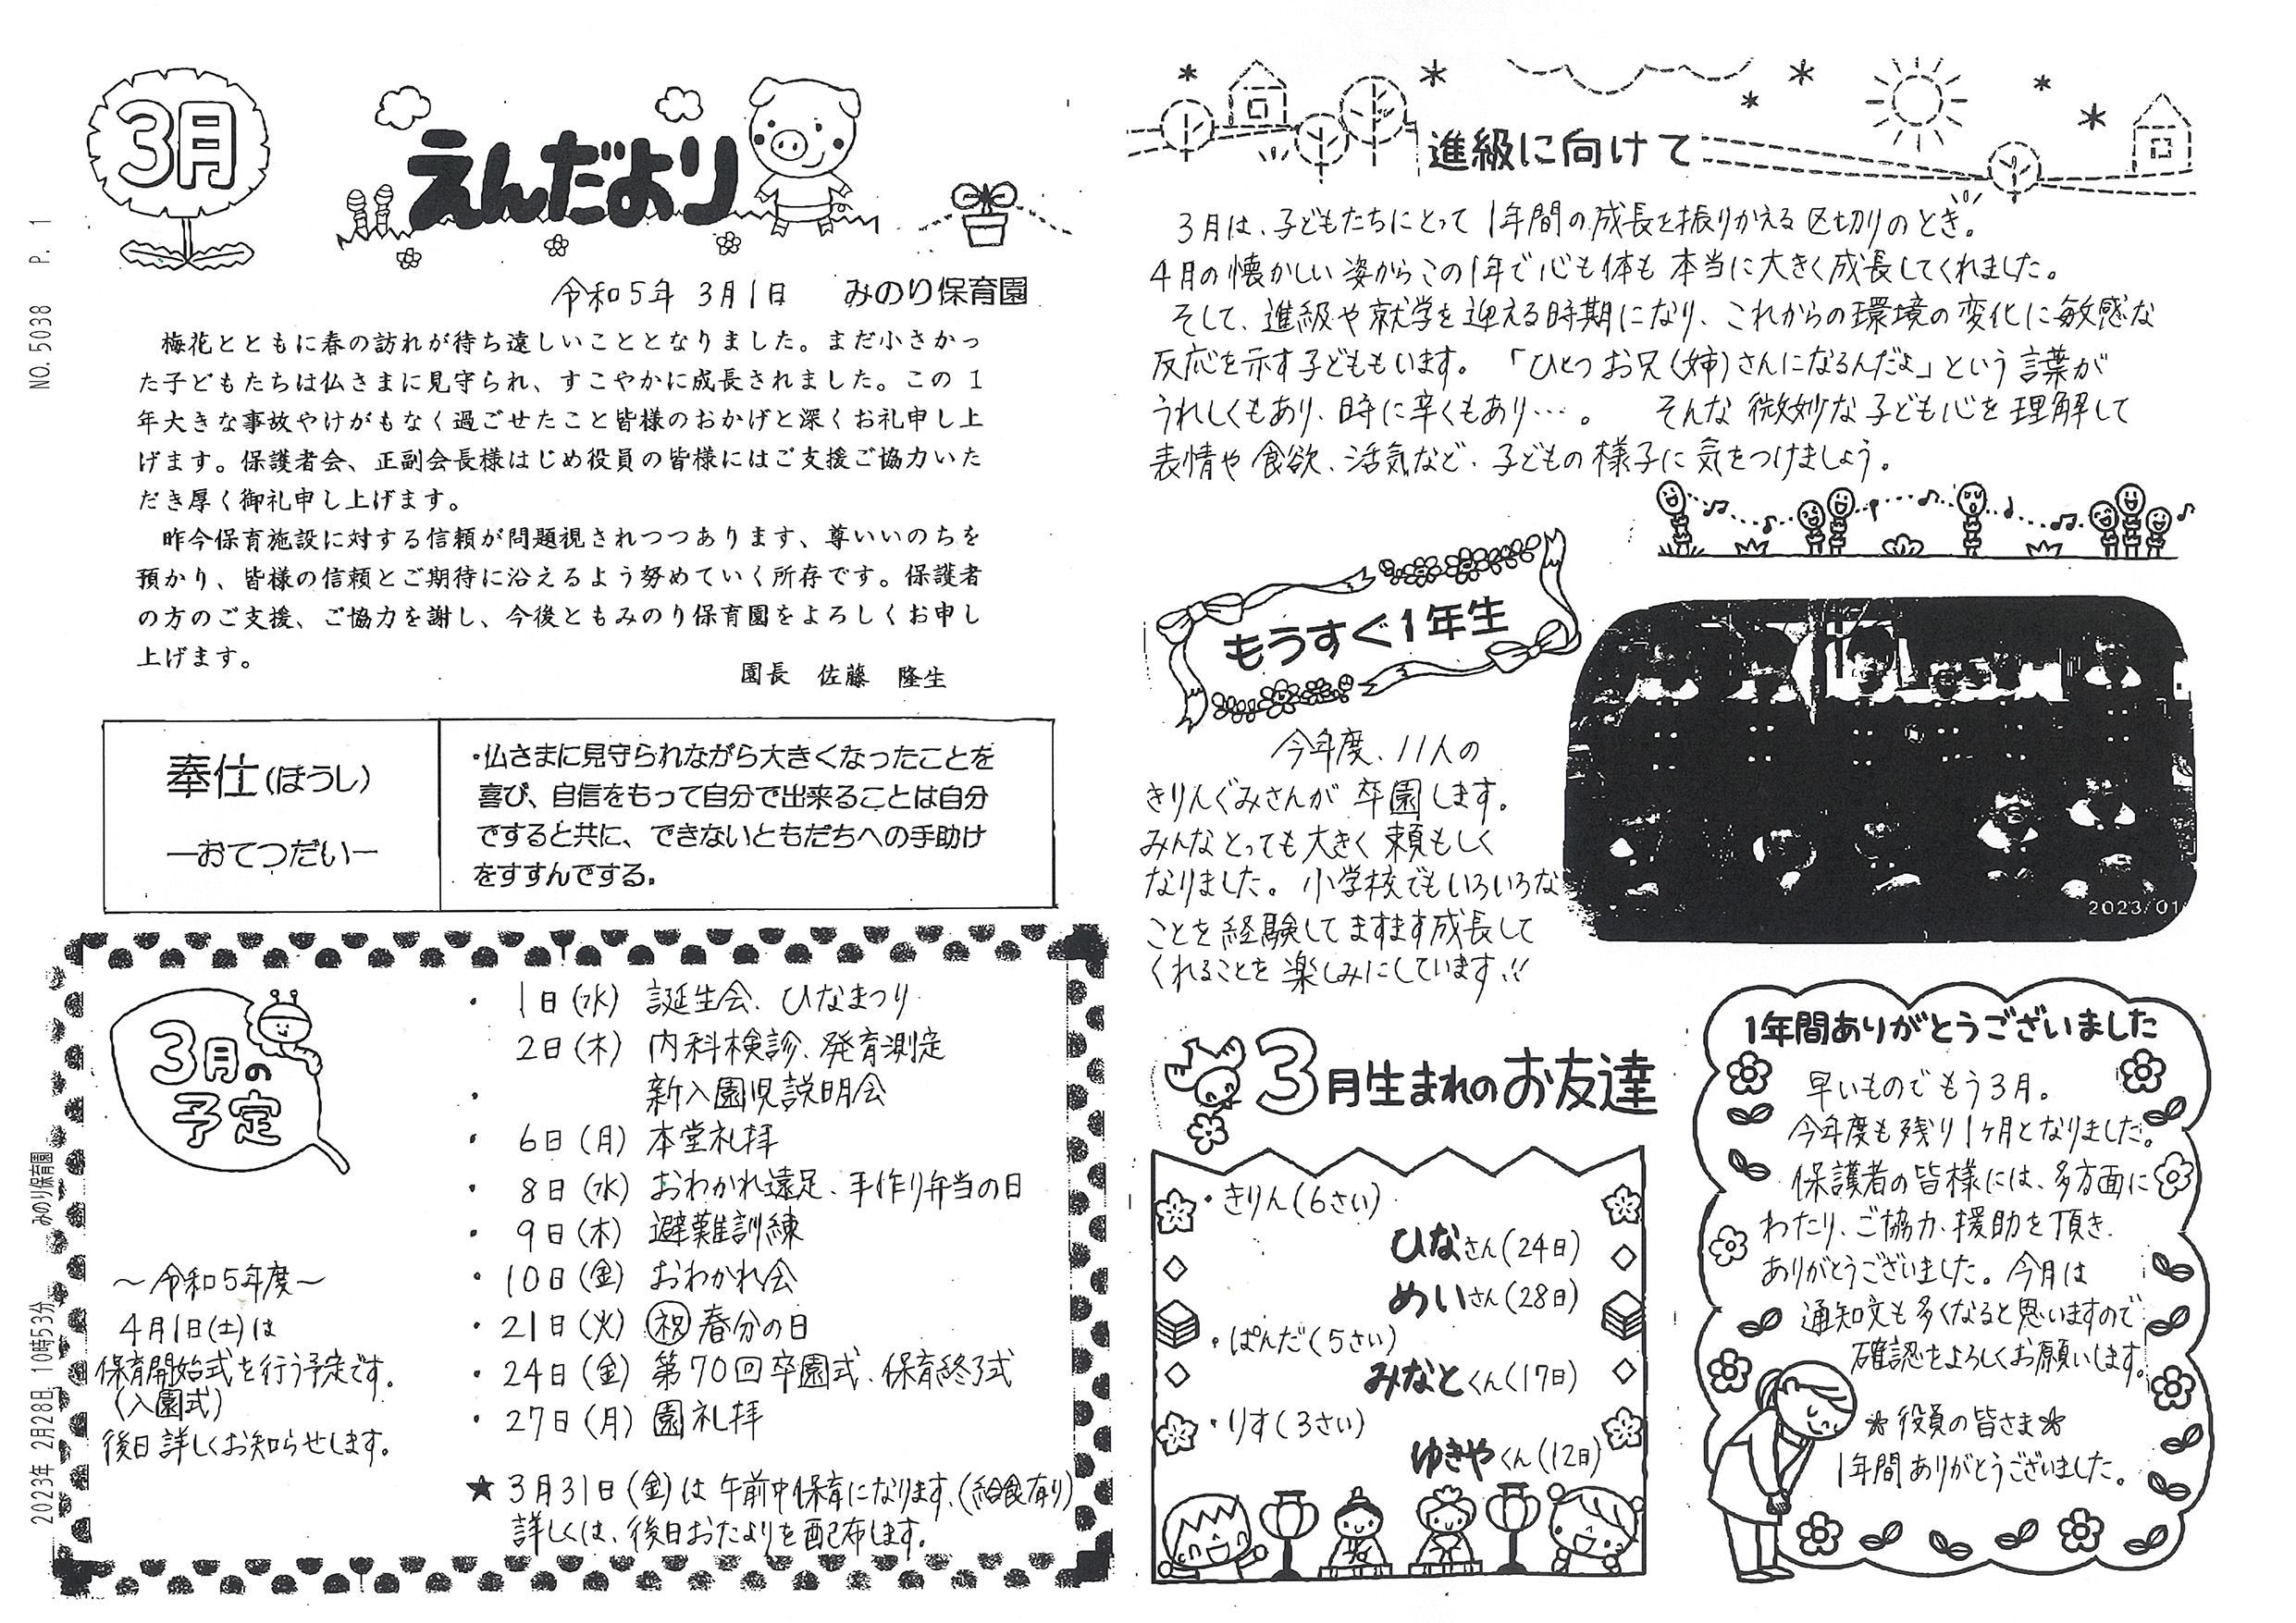 3月
えんだより
令和5年 3月1日 みのり保育園
梅花とともに春の訪れが待ち遠しいこととなりました。まだ小さかっ
た子どもたちは仏さまに見守られ、すこやかに成長されました。この1
年大きな事故やけがもなく過ごせたこと皆様のおかげと深くお礼申し上
げます。保護者会、正副会長様はじめ役員の皆様にはご支援ご協力いた
だき厚く御礼申し上げます。
昨今保育施設に対する信頼が問題視されつつあります、尊いいのちを
預かり、皆様の信頼とご期待に沿えるよう努めていく所存です。保護者
の方のご支援、ご協力を謝し、今後ともみのり保育園をよろしくお申し
上げます。
園長 佐藤 隆生
奉仕(ほうし)
―おてつだい―
・仏さまに見守られながら大きくなったことを
喜び、自信をもって自分で出来ることは自分
ですると共に、できないともだちへの手助け
をすすんでする。
3月の
予定
・1日(水) 誕生会、ひなまつり
2日(木) 内科検診、発育測定
・新入園児説明会
・6日(月) 本堂礼拝
・8日(水) おわかれ遠足、手作り弁当の日
・9日(木) 避難訓練
・10日(金) おわかれ会
・21日(火) ㊗春分の日
・24日(金) 第70回卒園式、保育終了式
・27日(月) 園礼拝
★3月31日(金)は午前中保育になります。(給食有り)
詳しくは、後日おたよりを配布します。
〜令和5年度〜
4月1日(土)は
保育開始式を行う予定です。
(入園式)
後日詳しくお知らせします。
進級に向けて
3月は、子どもたちにとって1年間の成長を振りかえる区切りのとき。
4月の懐かしい姿からこの1年で心も体も本当に大きく成長してくれました。
そして、進級や就学を迎える時期になり、これからの環境の変化に敏感な
反応を示す子どももいます。「ひとつお兄(姉)さんになるんだよ」という言葉が
うれしくもあり、時に辛くもあり…。 そんな微妙な子ども心を理解して
表情や食欲、活気など、子どもの様子に気をつけましょう。
もうすぐ1年生
今年度、11人の
きりんぐみさんが卒園します。
みんなとっても大きく頼もしく
なりました。小学校でもいろいろな
ことを経験してますます成長して
くれることを楽しみにしています!!
2023/01
3月生まれのお友達
・きりん(6さい)
ひなさん(24日)
めいさん(28日)
・ぱんだ(5さい)
みなとくん(17日)
・りす(3さい)
ゆきやくん(12日)
1年間ありがとうございました
早いものでもう3月。
今年度も残り1ヶ月となりました。
保護者の皆様には、多方面に
わたり、ご協力、援助を頂き、
ありがとうございました。今月は
通知文も多くなると思いますので
確認をよろしくお願いします。
役員の皆さま
1年間ありがとうございました。
2023年 2月28日 10時53分 みのり保育園 NO.5038 P. 1